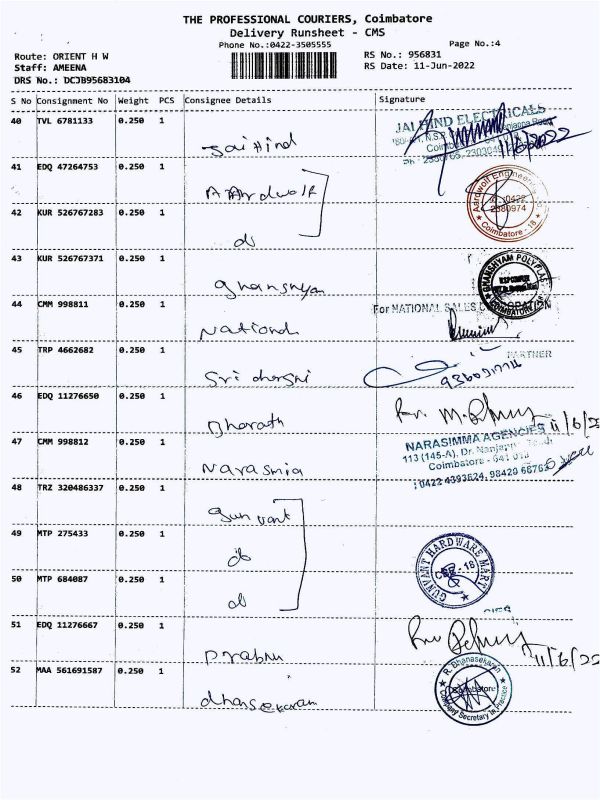 THE PROFESSIONAL COURIERS, Coimbatore
Delivery Runsheet - CMS
Phone No.:0422-3505555
Page No.:4
Route: ORIENT H W
RS No.: 956831
Staff: AMEENA
RS Date: 11-Jun-2022
DRS No.: DCJB95683104
S No Consignment No Weight PCS Consignee Details Signature
40 TVL 6781133 0.250 1
JAI HIND ELECTRICALS
Jai Hind
11/6/2022
41 EDQ 47264753 0.250 1
Aardwolf Engineering
0422
2380974
Coimbatore - 18
42 KUR 526767283 0.250 1
do
43 KUR 526767371 0.250 1
GHANSHYAM POLYPLAF
COIMBATORE
ghanshyam
44 CMM 998811 0.250 1
For NATIONAL SALES CORPORATION
National
45 TRP 4662682 0.250 1
PARTNER
Sri dharsni
46 EDQ 11276650 0.250 1
Bharath
11/6/22
47 CMM 998812 0.250 1
NARASIMMA AGENCIES
113 (145-A), Dr. Nanjappa Road,
Coimbatore - 641 018
: 0422 4393624, 98420 66763
Narasmia
48 TRZ 320486337 0.250 1
gunvant
49 MTP 275433 0.250 1
do
GUNVANT HARDWARE MART
CBE - 18
50 MTP 684087 0.250 1
do
51 EDQ 11276667 0.250 1
Prabhu
11/6/22
52 MAA 561691587 0.250 1
R. Dhanasekaran
Coimbatore
Company Secretary in Practice
dhansekaram